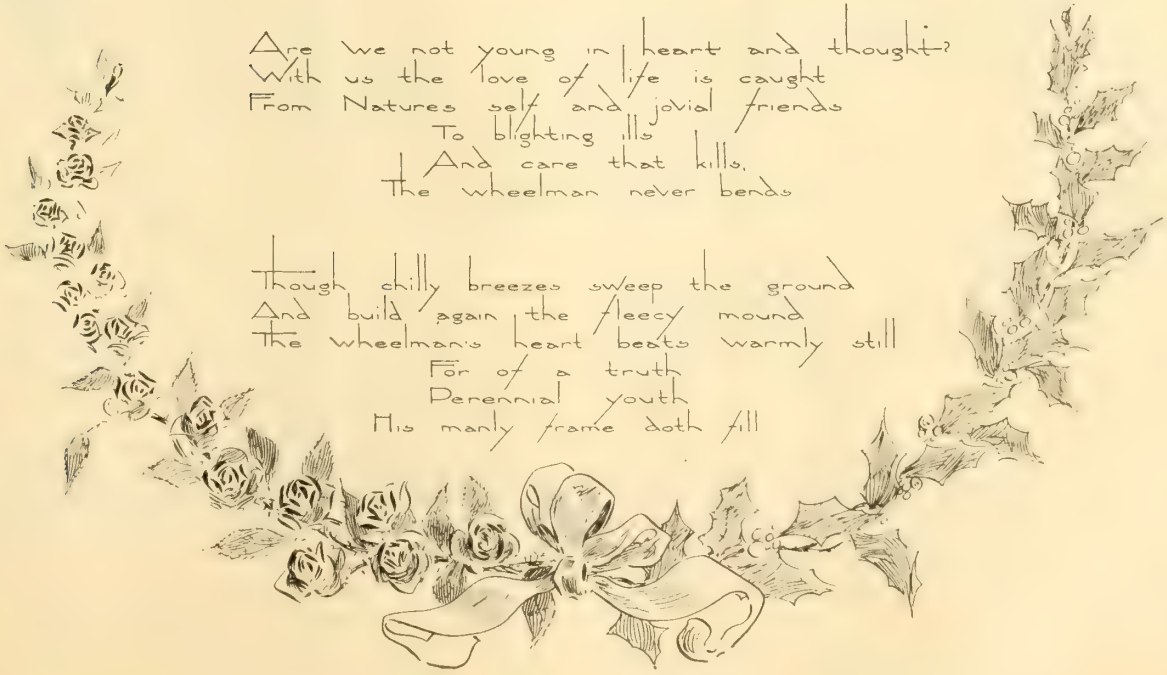 Are we not young in heart and thought?
With us the love of life is caught
From Natures self and jovial friends
To blighting ills
And care that kills,
The wheelman never bends
Though chilly breezes sweep the ground
And build again the fleecy mound
The wheelman's heart beats warmly still
For of a truth
Perennial youth
His manly frame doth fill